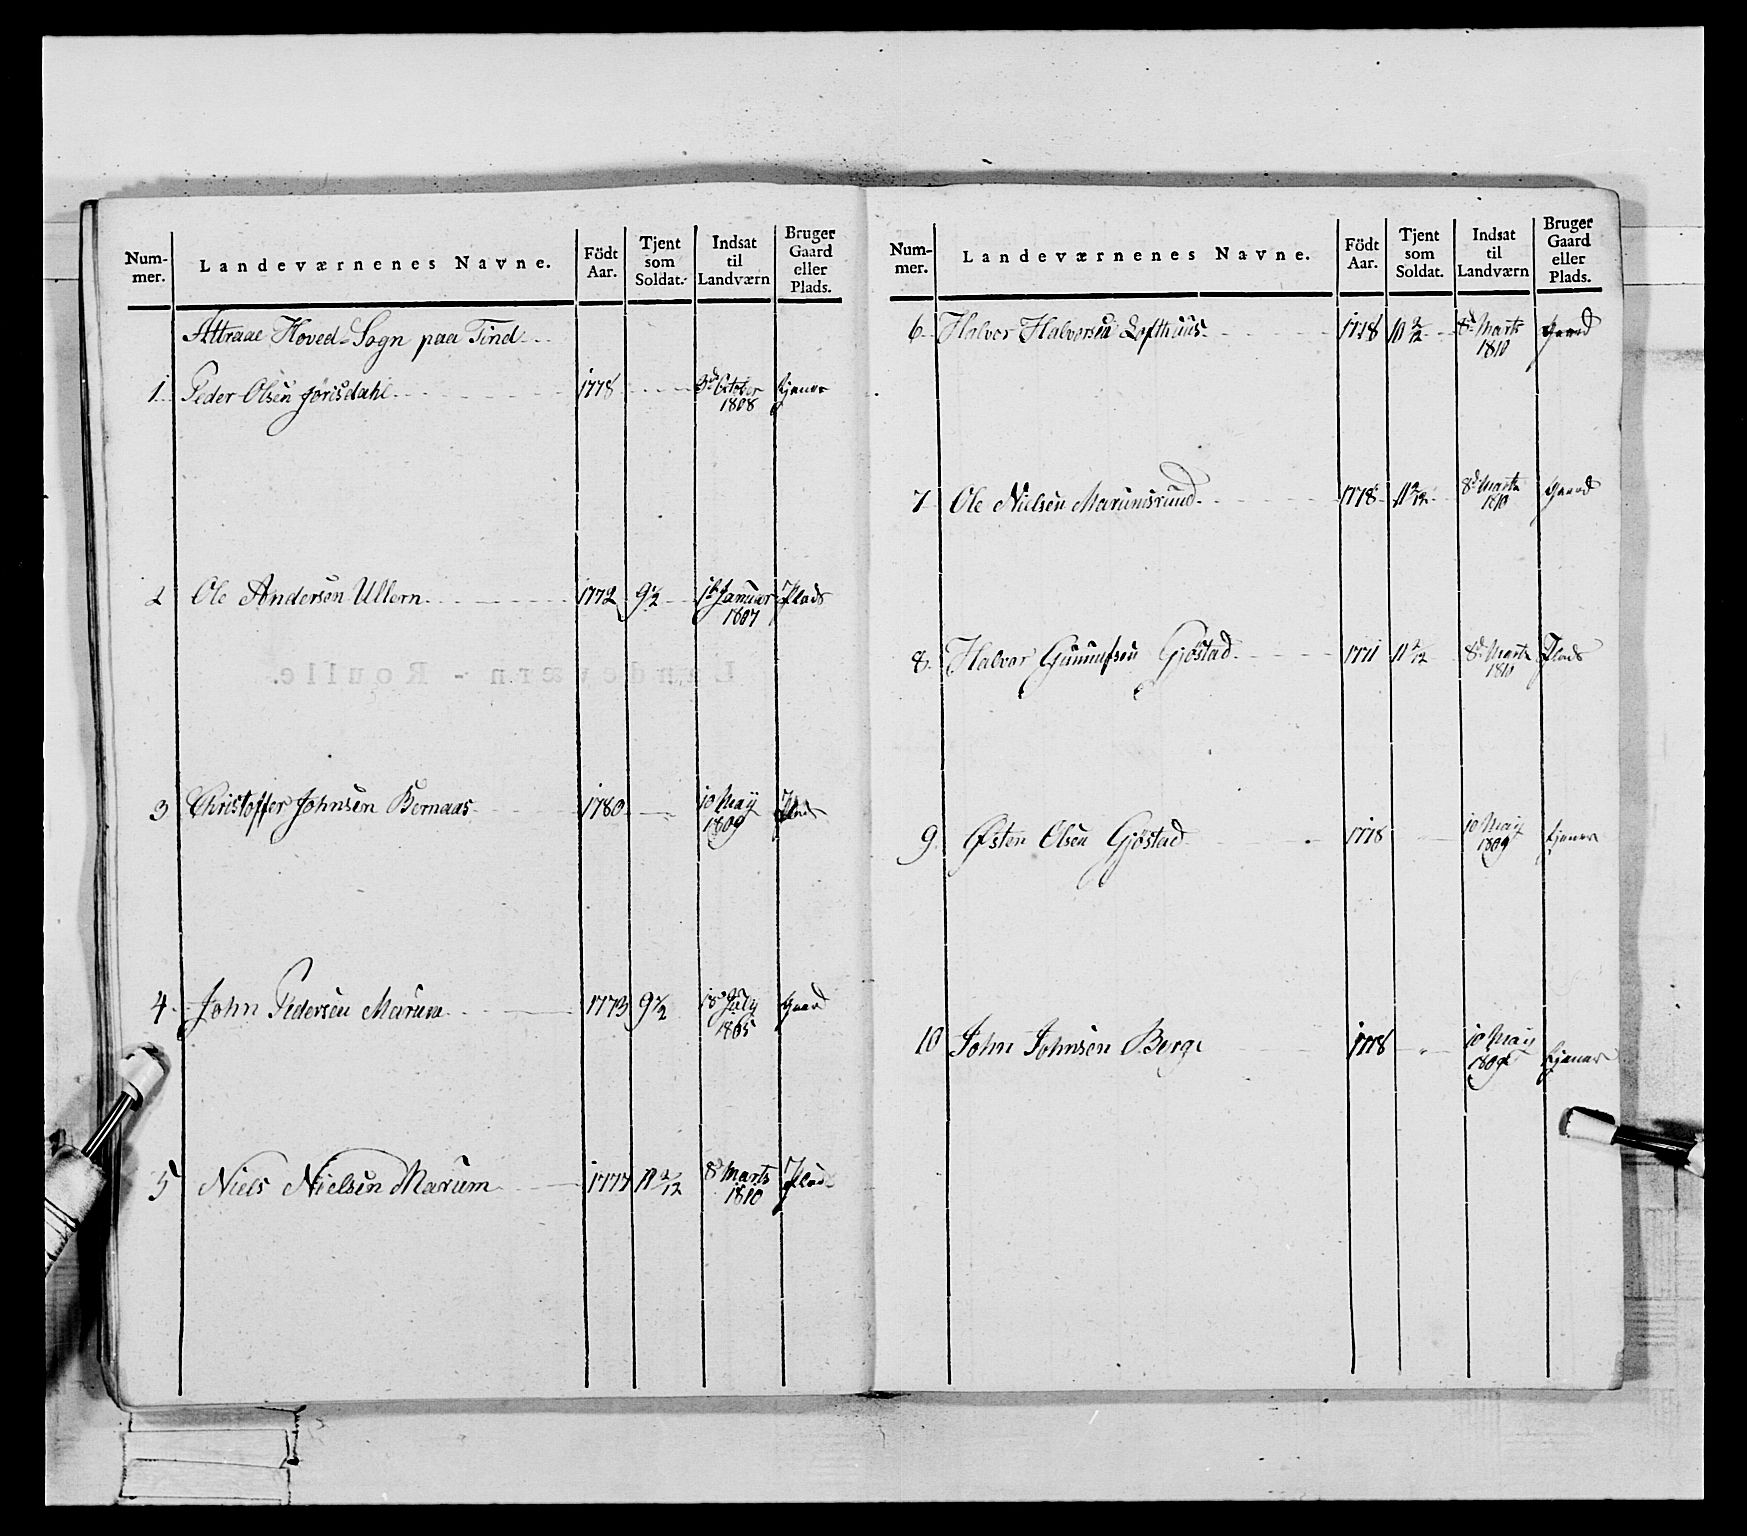 Num-
mer.
Landeværnenes Navne.
Födt
Aar.
Tjent
som
Soldat.
Indsat
til
Landværn
Bruger
Gaard
eller
Plads.
Attraae Hoved-Sogn paa Tind
1 Peder Olsen Jørisdahl 1778 3d October tjener
1808
2 Ole Andersen Ullern 1772 9½ Januar Plads
1807
3 Christoffer Johnsen Bernaas 1780 10 May Plads
1809
4 John Pedersen Marum 1773 9½ 18 July Gaard
1805
5 Niels Nielsen Marum 1777 11 2/12 8d Marts Plads
1810
Num-
mer.
Landeværnenes Navne.
Födt
Aar.
Tjent
som
Soldat.
Indsat
til
Landværn
Bruger
Gaard
eller
Plads.
6 Halvor Halvorsen Lofthuus 1778 11 2/12 8d Marts Gaard
1810
7 Ole Nielsen Marumsrund 1778 11 2/12 8d Marts Gaard
1810
8 Halvor Gunnufsen Gjøstad 1771 11 2/12 8d Marts Plads
1810
9 Østen Olsen Gjøstad 1778 10 May tjener
1809
10 John Johnsen Berge 1778 10 May tjener
1809
Landeværn-Roulle.